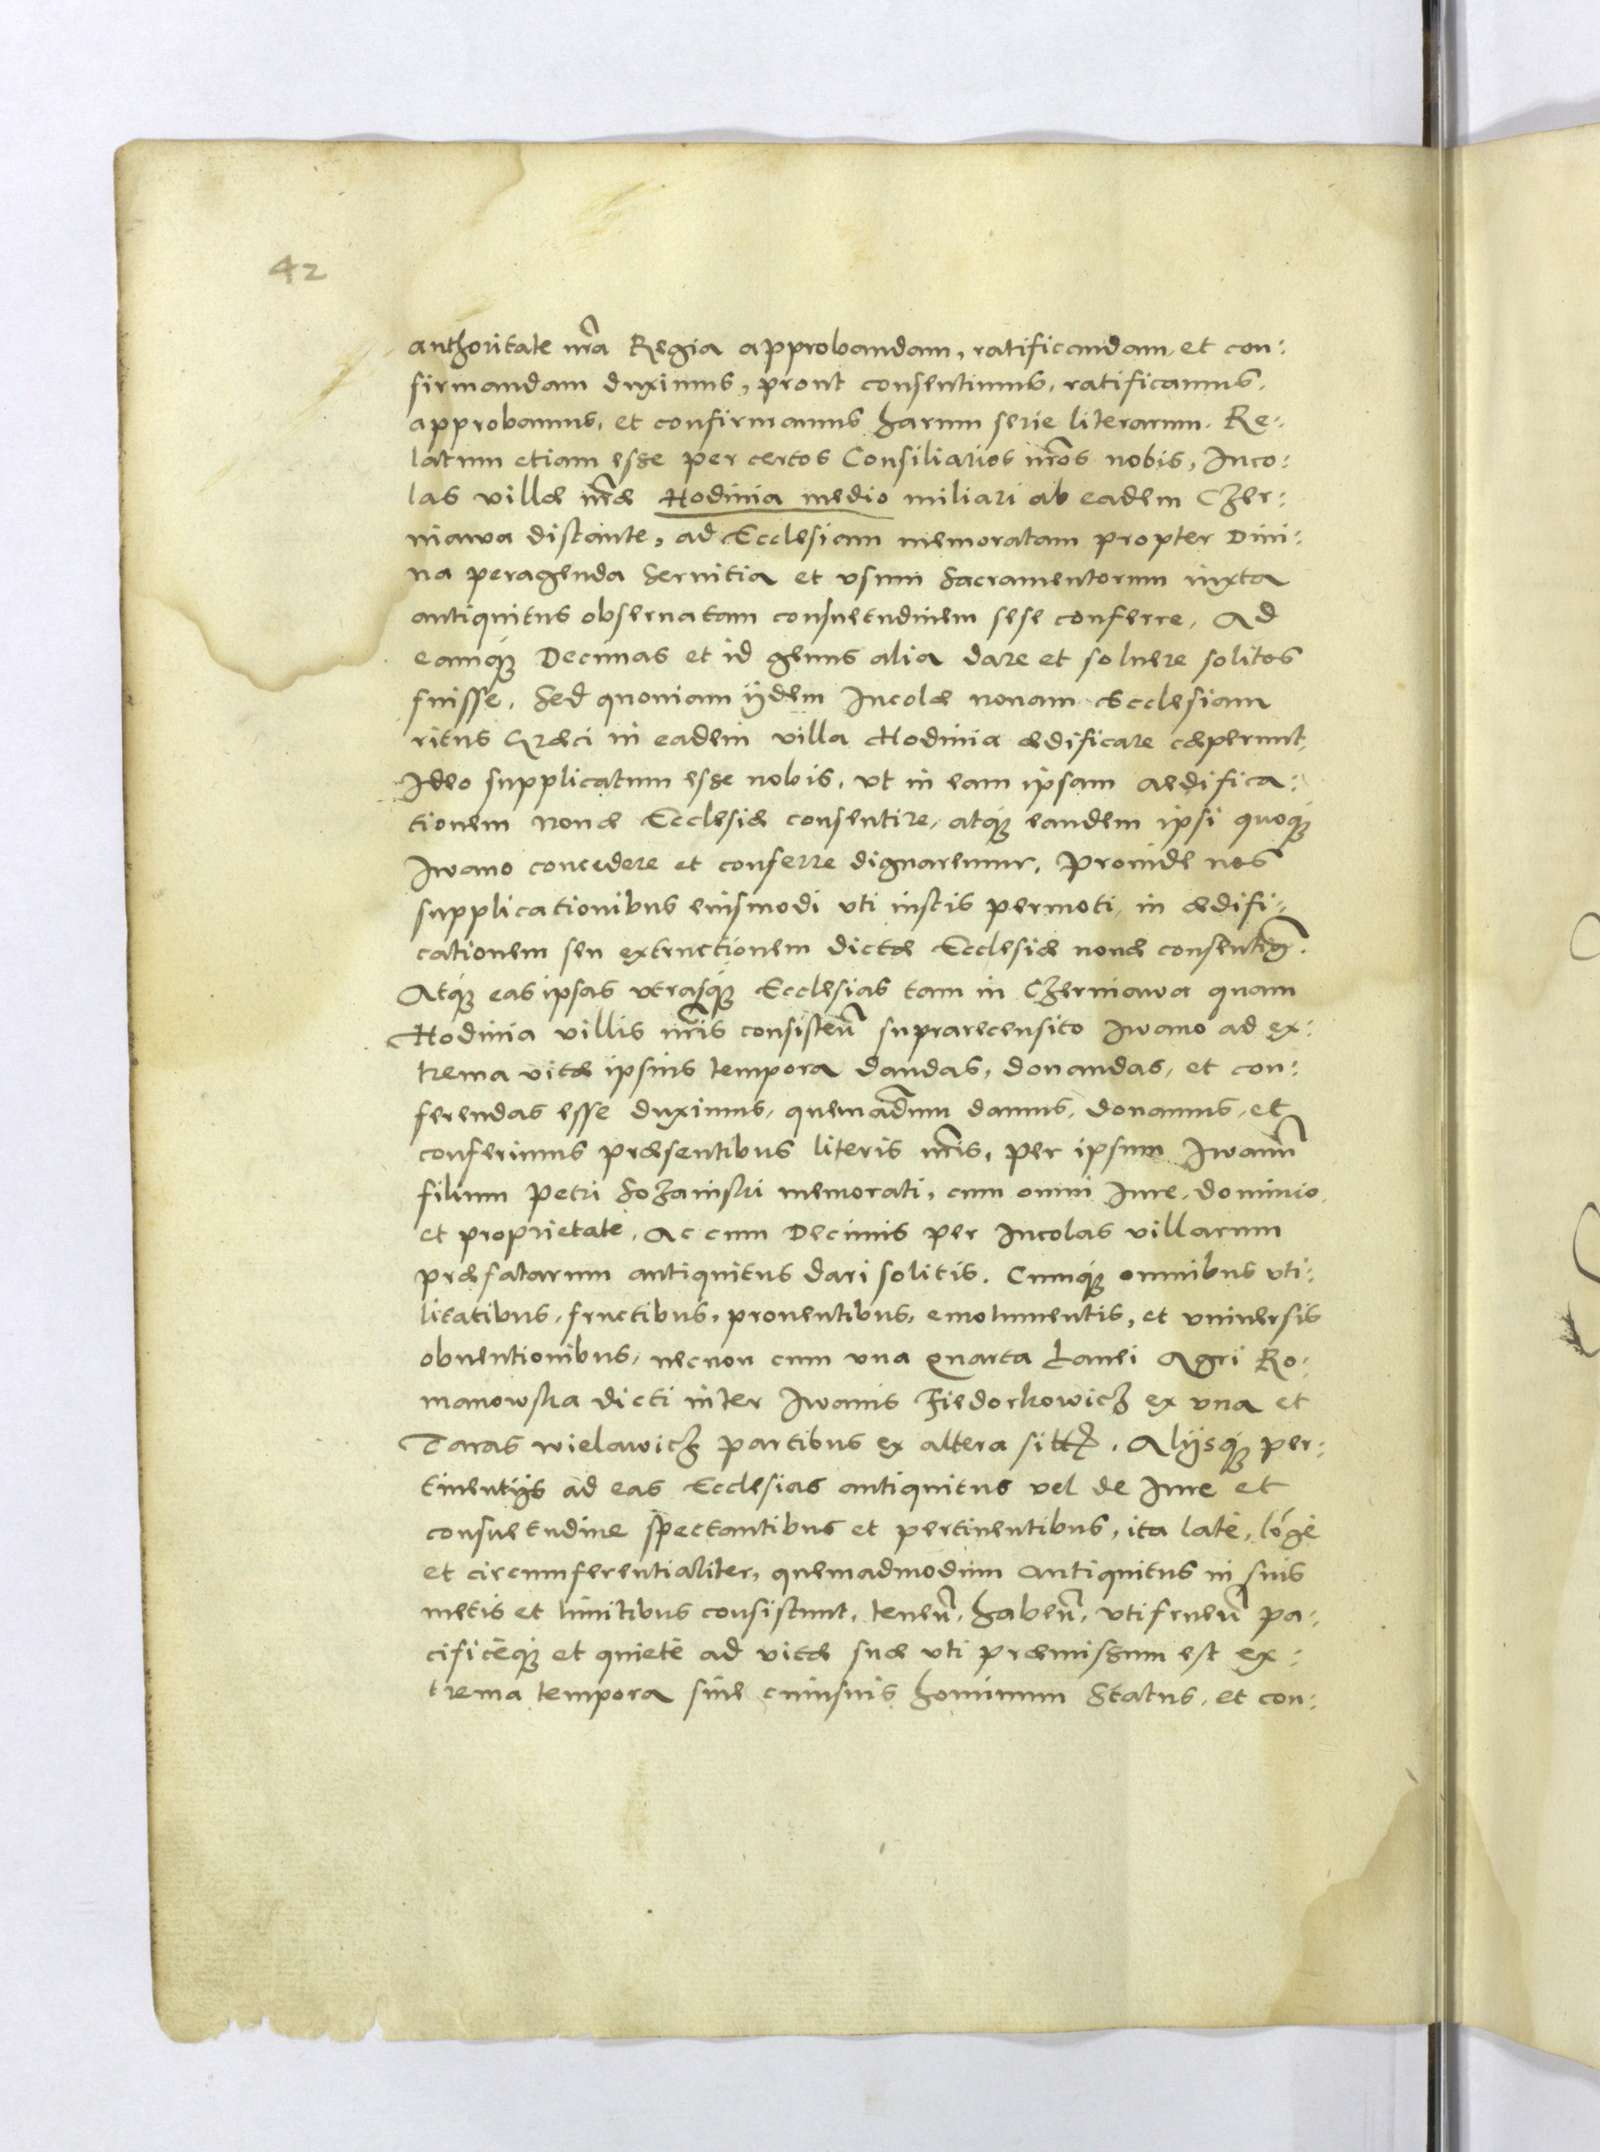 42
authoritate nr̃a Regia approbandam, ratificandam, et con:
firmandam duximus, prout consentimus, ratificamus,
approbamus, et confirmamus harum serie literarum. Re:
latum etiam esse per certos Consiliarios nr̃os nobis, Inco:
las villæ nr̃æ Hodinia medio miliari ab eadem Czer:
niawa distante, ad Ecclesiam memoratam propter Diui:
na peragenda Seruitia et vsum Sacramentorum iuxta
antiquitus obseruatam consuetudinem sese conferre, Ad
eamq; Decimas et id genus alia dare et soluere solitos
fuisse. Sed quoniam ijdem Incolæ nouam Ecclesiam
ritus Græci in eadem villa Hodinia ædificare cæperunt,
Ideo supplicatum esse nobis, vt in eam ipsam aedifica:
tionem nouæ Ecclesiæ consentire, atq; eandem ipsi quoq;
Iwano concedere et conferre dignaremur. Proinde nos
supplicationibus eiusmodi vti iustis permoti, in ædifi:
cationem seu extructionem dictæ Ecclesiæ nouæ consentien̄.
Atq; eas ipsas vtrasq; Ecclesias tam in Czerniawa quam
Hodinia villis nr̃is consisteñ suprarecensito Iwano ad ex:
trema vitæ ipsius tempora dandas, donandas, et con:
ferendas esse duximus, quemadm̃um damus, donamus, et
conferimus præsentibus literis nr̃is, per ipsum Iwanũ
filium Petri Sozanski memorati, cum omni Iure, dominio,
et proprietate, Ac cum Decimis per Incolas villarum
præfatarum antiquitus dari solitis. Cumq; omnibus vti:
litatibus, fructibus, prouentibus, emolumentis, et vniuersis
obuentionibus, necnon cum vna Quarta Lanei Agri Ro:
manowska dicti inter Iwanis Fiedorkowicz ex vna et
Taras wielawicz partibus ex altera sitt. Alijsq; per:
tinentijs ad eas Ecclesias antiquitus vel de Iure et
consuetudine spectantibus et pertinentibus, ita latè, lõgè
et circumferentialiter, quemadmodum antiquitus in suis
metis et limitibus consistunt, teneñ, habeñ, vtifrueñ pa:
cificèq; et quietè ad vitæ suæ vti præmissum est ex:
trema tempora siue cuiusuis hominum Status, et con: